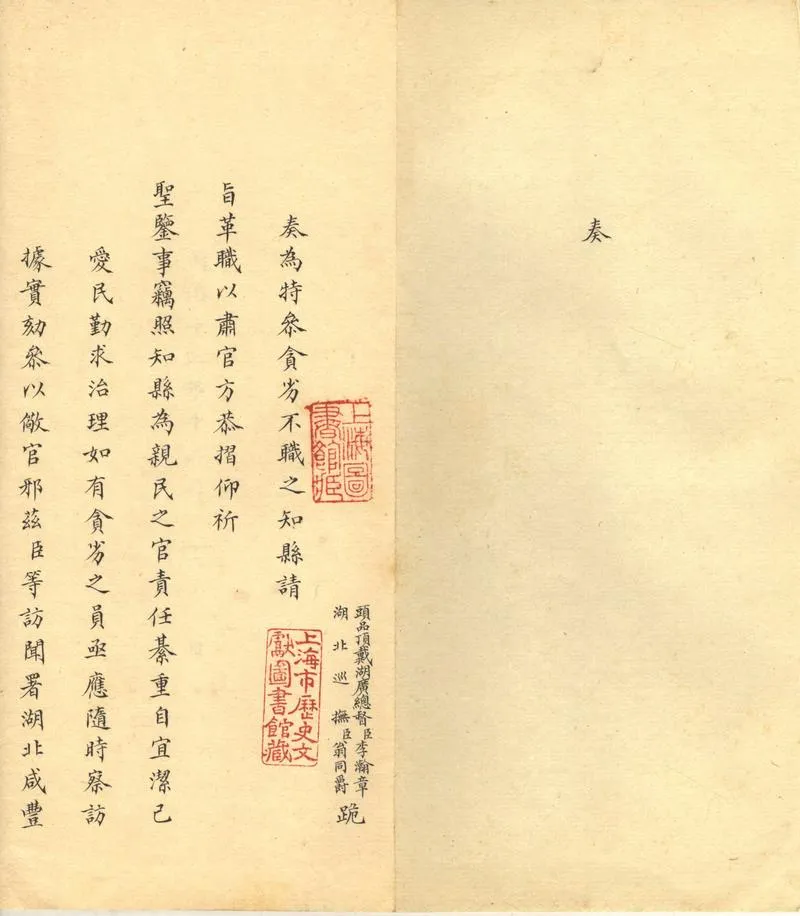 奏
頭品頂戴湖廣總督臣李瀚章
湖北巡撫臣翁同爵
跪
奏為特叅貪劣不職之知縣請
旨革職以肅官方恭摺仰祈
聖鑒事竊照知縣為親民之官責任綦重自宜潔己
愛民勤求治理如有貪劣之員亟應隨時察訪
據實劾叅以儆官邪茲臣等訪聞署湖北咸豐
上海圖
書館
上海市歷史文
獻圖書館藏